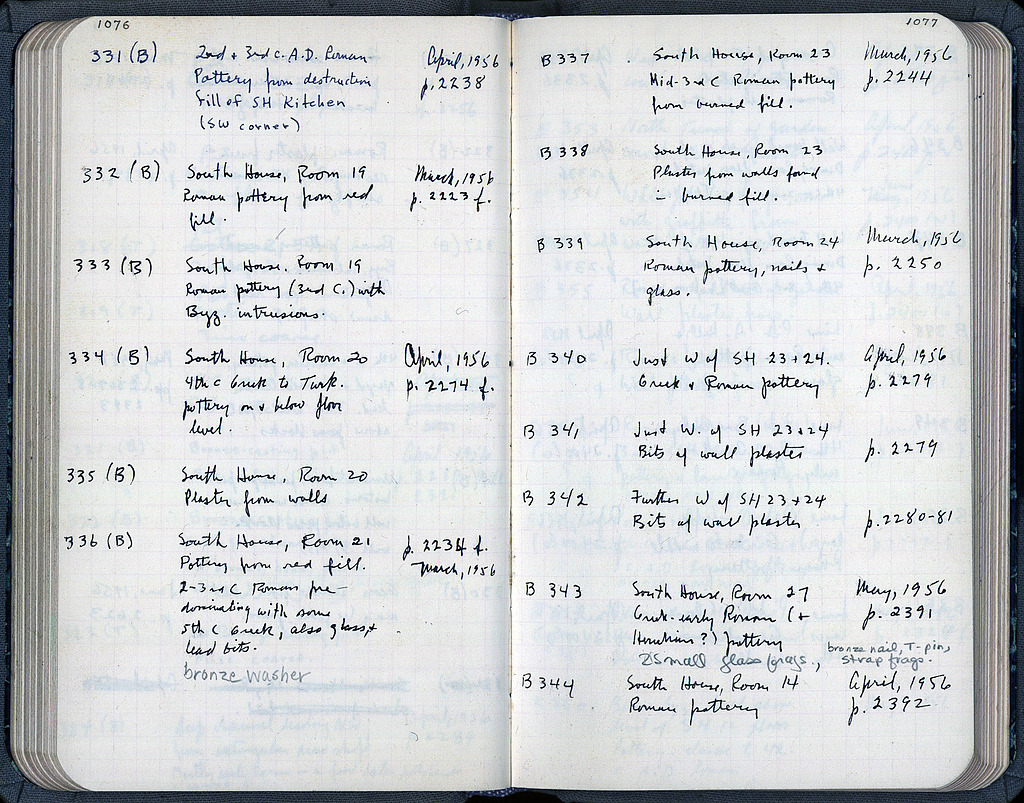 1076
331 (B) 2nd + 3rd c. A.D. Roman April, 1956
Pottery from destruction p. 2238
fill of SH Kitchen
(SW corner)
332 (B) South House, Room 19 March, 1956
Roman pottery from red p. 2223 f.
fill.
333 (B) South House. Room 19
Roman pottery (3rd C.) with
Byz. intrusions.
334 (B) South House, Room 20 April, 1956
4th c Greek to Turk. p. 2274 f.
pottery on + below floor
level.
335 (B) South House, Room 20
Plaster from walls
336 (B) South House, Room 21 p. 2234 f.
Pottery from red fill. March, 1956
2-3rd C Roman pre-
dominating with some
5th C Greek, also glass, +
lead bits.
bronze washer
1077
B 337 South House, Room 23 March, 1956
Mid-3rd C Roman pottery p. 2244
from burned fill.
B 338 South House, Room 23
Plaster from walls found
in burned fill.
B 339 South House, Room 24 March, 1956
Roman pottery, nails + p. 2250
glass.
B 340 Just W of SH 23+24. April, 1956
Greek + Roman pottery p. 2279
B 341 Just W. of SH 23+24
Bits of wall plaster p. 2279
B 342 Further W of SH 23+24
Bits of wall plaster p. 2280-81
B 343 South House, Room 27 May, 1956
Greek-early Roman (+ p. 2391
) pottery
2 small glass frags., bronze nail, T-pin,
strap frags.
B 344 South House, Room 14 April, 1956
Roman pottery p. 2392